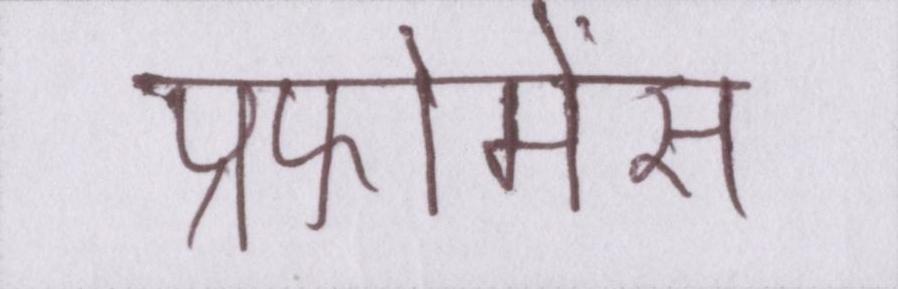 प्रफोमेंस